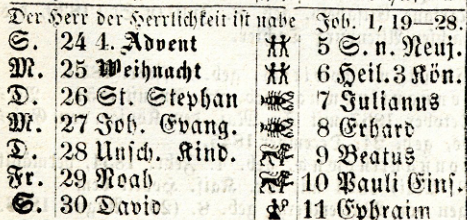 Der Herr der Herrlichkeit ist nahe Joh. 1, 19–28.
S. 24 4. Advent 5 S. n. Neuj.
M. 25 Weihnacht 6 Heil. 3 Kön.
D. 26 St. Stephan 7 Julianus
M. 27 Joh. Evang. 8 Erhard
D. 28 Unsch. Kind. 9 Beatus
Fr. 29 Noah 10 Pauli Eins.
S. 30 David 11 Ephraim